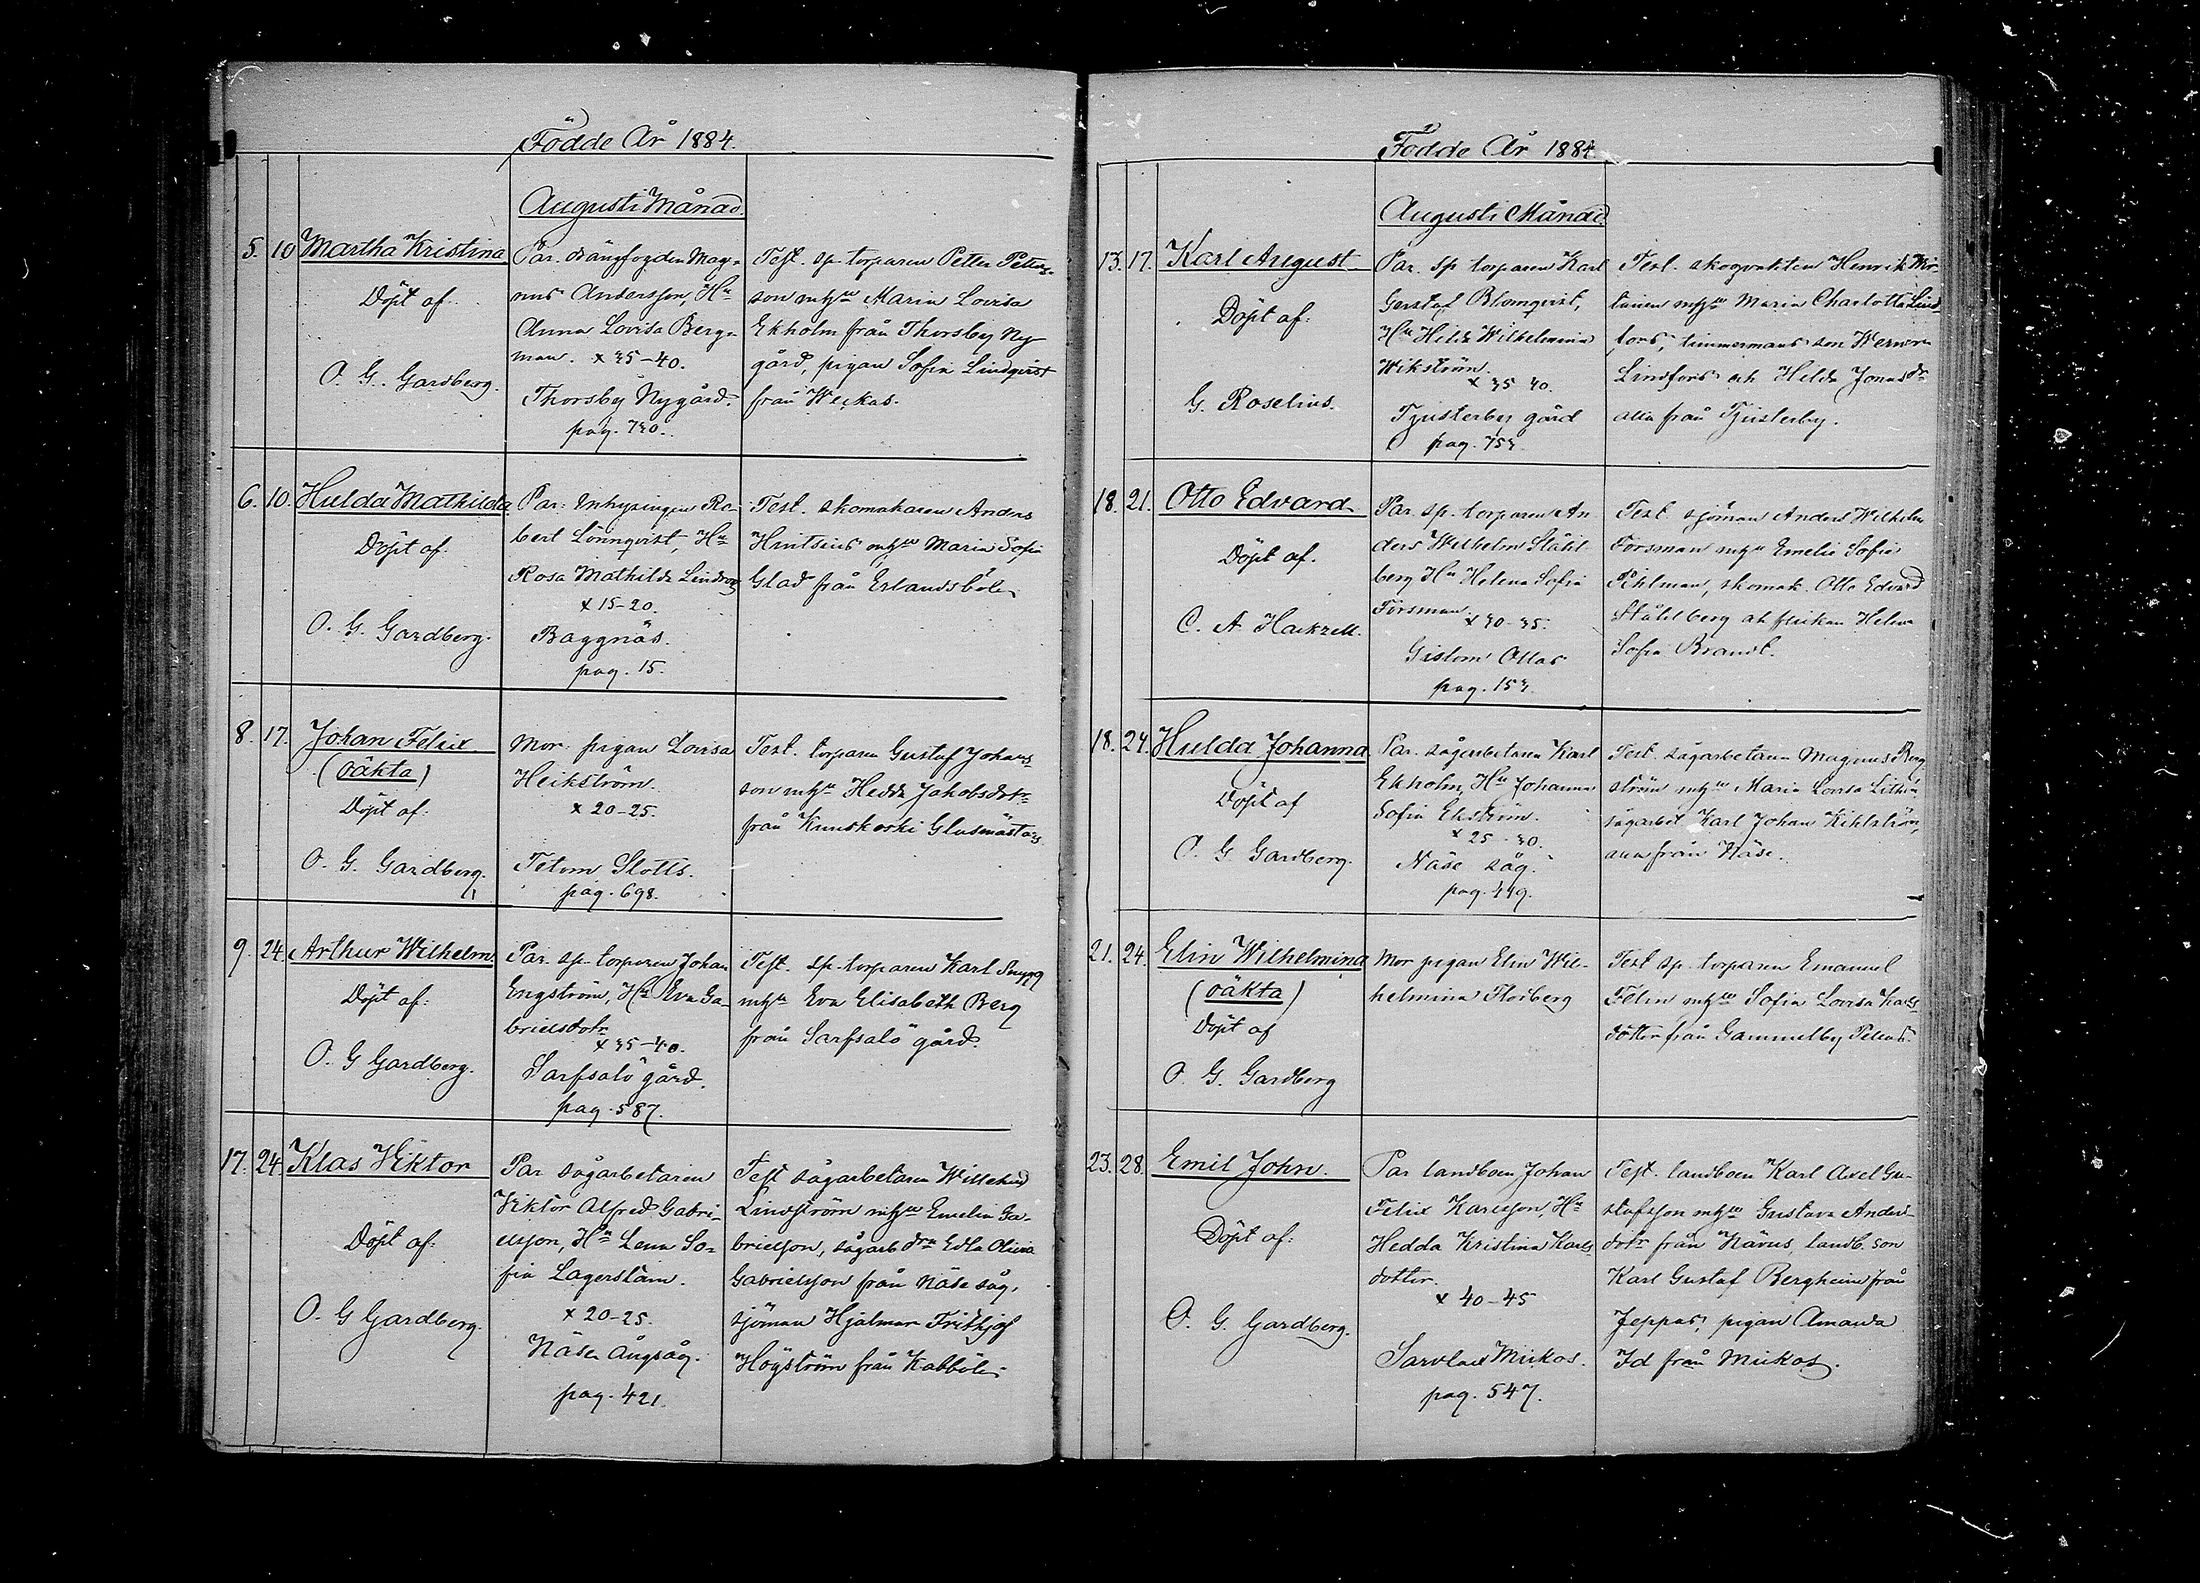 Födde År 1884.
Augusti Månad.
5. 10 Martha Kristina
Döpt af.
O. G. Gardberg.
Par. drängfogden Mag-
nus Andersson, Hu
Anna Lovisa Berg-
man. x 35-40.
Thorsby Nygård.
pag. 730.
Test. sp. torparen Petter Petters-
son m hu Maria Lovisa
Ekholm från Thorsby Ny
gård, pigan Sofia Lindqvist
från Weckas.
6. 10. Hulda Mathilda
Döpt af.
O. G. Gardberg.
Par. Inhysingen Ro-
bert Lönnqvist, Hu
Rosa Mathilda Lindroos
x 15-20.
Baggnäs.
pag. 15.
Test. skomakaren Anders
m hu Maria Sofia
Glad från Erlandsböle
8. 17. Johan Felix
(oäkta)
Döpt af.
O. G. Gardberg.
Mor: pigan Lovisa
Heikström.
x 20-25.
Tetom Slotts.
pag. 698.
Test. torparen Gustaf Johans-
son m hu Hedda Jakobsdotr
från Kuuskoski Glasmästars
9. 24. Arthur Wilhelm
Döpt af:
O. G Gardberg.
Par. sp. torparen Johan
Engström, Hu Eva Ga-
brielsdotr
x 35-40.
Sarfsalö gård.
pag. 587.
Test. sp. torparen Karl Snygg
m hu Eva Elisabeth Berg
från Sarfsalö gård.
17. 24. Klas Viktor
Döpt af:
O. G Gardberg.
Par sågarbetaren
Viktor Alfred Gabri-
elsson, Hu Lena So-
fia Lagerstam.
x 20-25.
Näse Ångsåg.
pag. 421.
Test sågarbetaren Willehad
Lindström m hu Emelia Ga-
brielsson, sågarb. dra Edla Olivia
Gabrielsson från Näse såg,
sjöman Hjalmar Frithjof
Högström från Kabböle
Födde År 1884.
Augusti Månad
13. 17. Karl August
Döpt af:
G. Roselius.
Par. sp torparen Karl
Gustaf Blomqvist,
Hu Hilda Wilhelmina
Wikström.
x 35 40.
Tjusterby gård
pag. 753.
Test. skogvakten Henrik
m hu Maria Charlotta Lind-
fors, timmermans son Werner
Lindfors och Hilda Jonasdr
alla från Tjusterby.
18. 21. Otto Edvard
Döpt af.
C. A Hackzell.
Par. sp. torparen An
ders Wilhelm Ståhl
berg Hu Helena Sofia
Forsman
x 30-35.
Gislom Ollas
pag. 153.
Test. sjöman Anders Wilhelm
Forsman m hu Emelie Sofia
Pihlman, skomak. Otto Edvard
Ståhlberg ak flickan Helena
Sofia Brandt.
18. 24. Hulda Johanna
Döpt af
O. G. Gardberg.
Par. sågarbetaren Karl
Ekholm, Hu Johanna
Sofia Ekström.
x 25-30.
Näse såg.
pag. 449.
Test. sågarbetaren Magnus Berg
ström m hu Maria Lovisa
sågarbet Karl Johan Kihlström,
alla från Näse.
21. 24. Elin Wilhelmina
(oäkta)
Döpt af
O. G. Gardberg
Mor pigan Elin Wil-
helmina Floberg
Test sp. torparen Emanuel
Felin m hu Sofia Lovisa Karls
dotter från Gammelby
23. 28. Emil John.
Döpt af:
O. G. Gardberg.
Par landboen Johan
Felix Karlsson, Hu
Hedda Kristina Karls
dotter.
x 40-45
Sarvlax Mickos.
pag. 547.
Test. landboen Karl Axel Gu-
stafsson m hu Gustava Anders-
dotr från Härus, landb. son
Karl Gustaf Bergheim från
Jeppas, pigan Amanda
Id från Mickos.